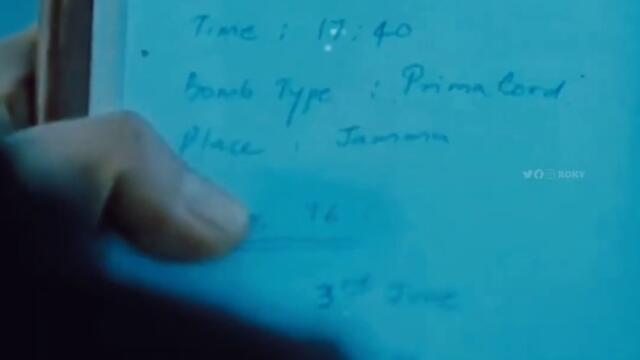 Time : 17:40
Bomb Type : Prima Cord
Place : Jammu
96
3rd June
ROKY